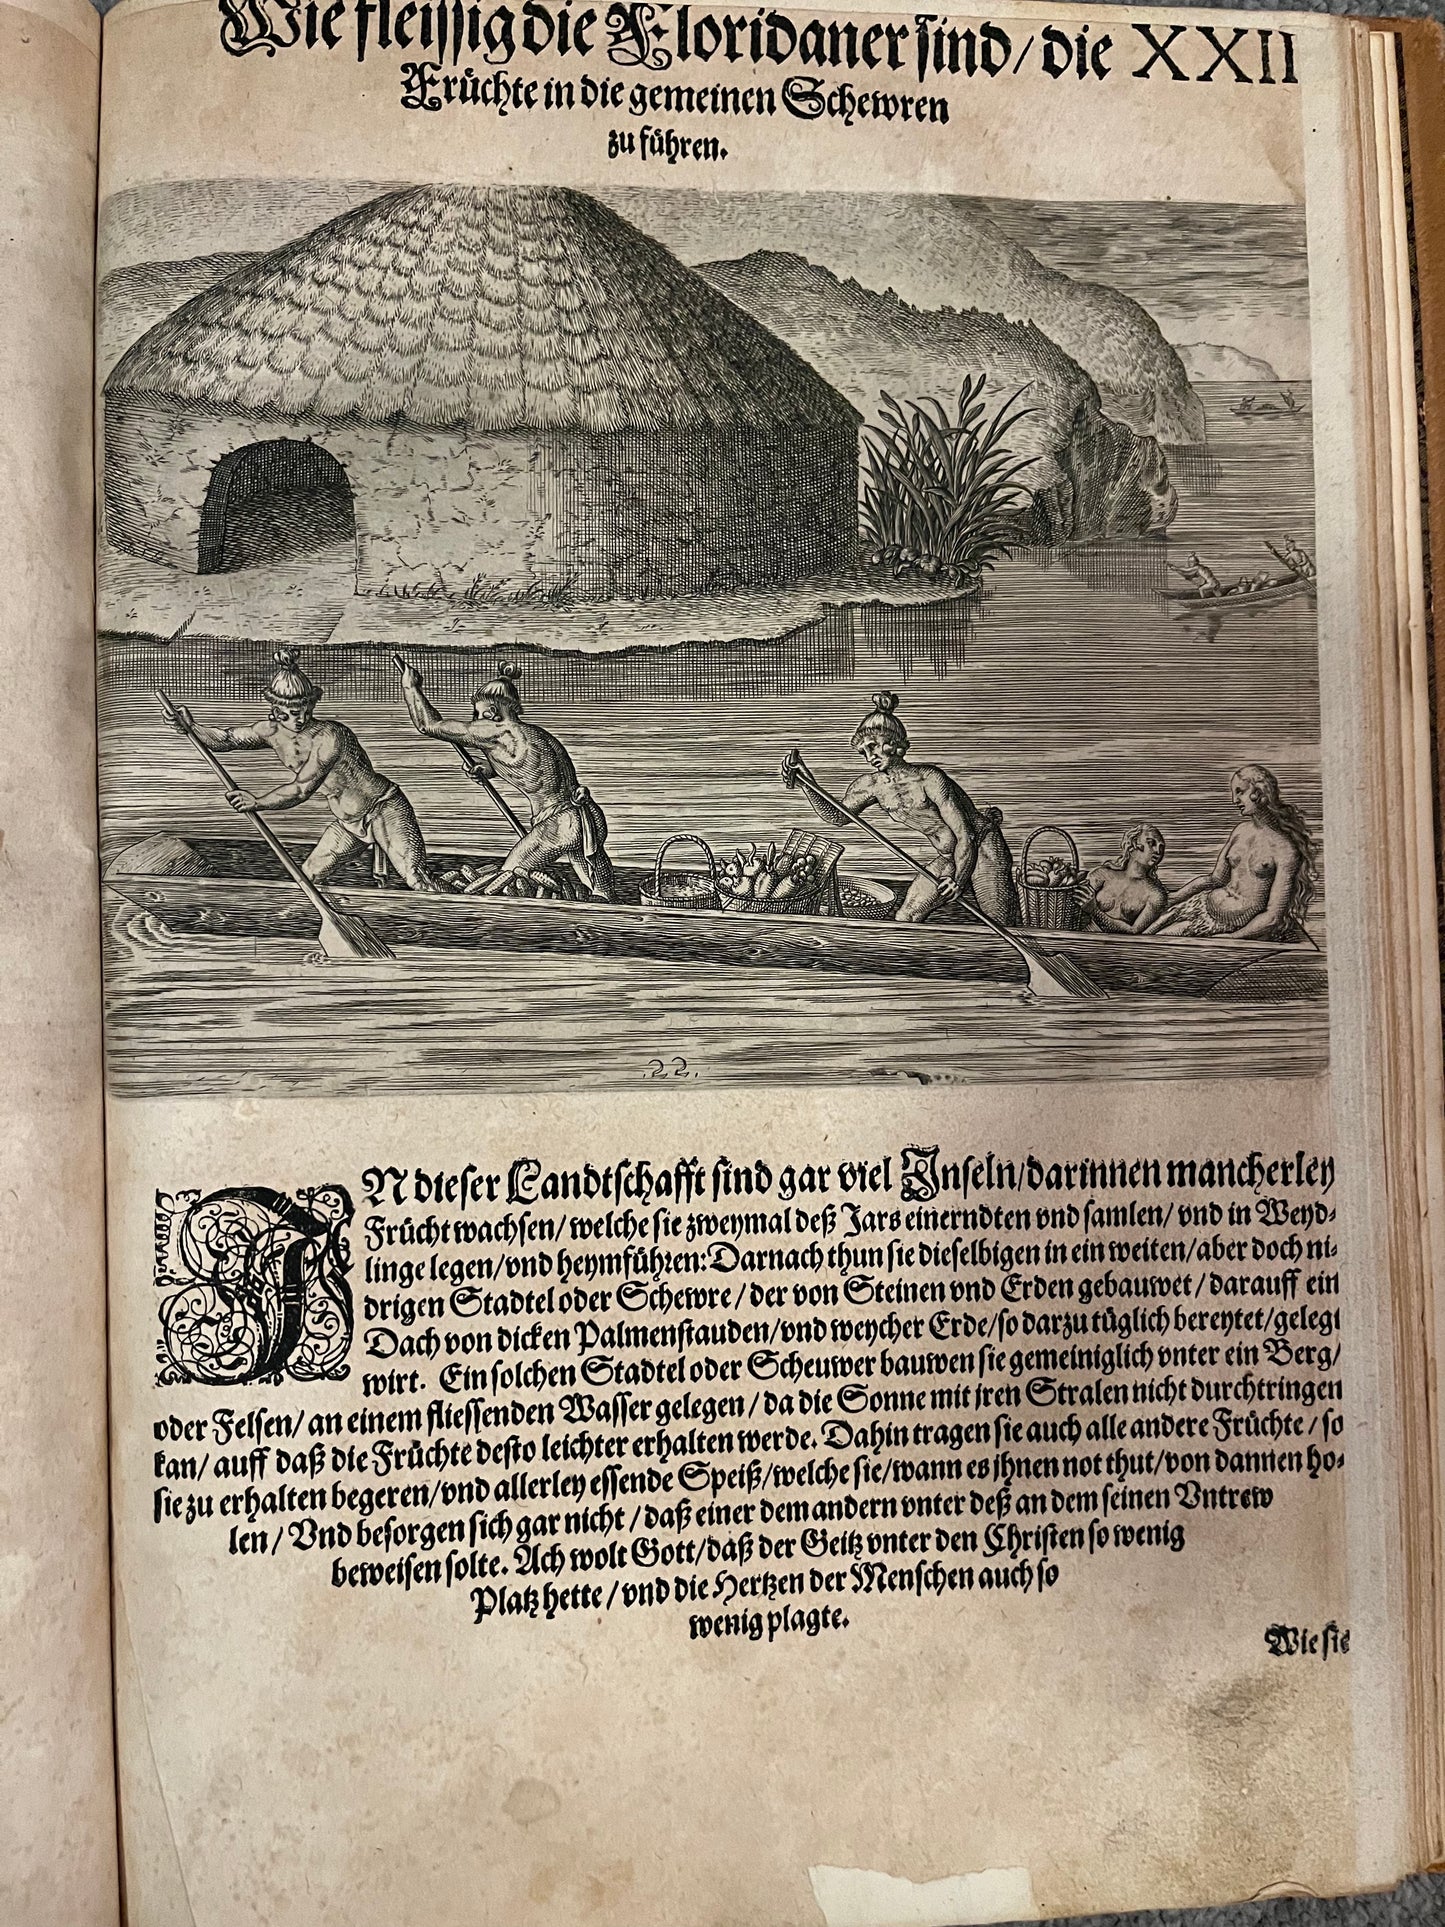 Wie fleissig die Floridaner sind/die XXII
Früchte in die gemeinen Schewren
zu führen.
22.
IN dieser Landtschafft sind gar viel Inseln/darinnen mancherley
Frücht wachsen/welche sie zweymal deß Jars einerndten vnd samlen/vnd in Weyd-
linge legen/vnd heymführen: Darnach thun sie dieselbigen in ein weiten/aber doch ni-
drigen Stadtel oder Schewre/der von Steinen vnd Erden gebauwet/darauff ein
Dach von dicken Palmenstauden/vnd weycher Erde/so darzu tüglich bereytet/gelegt
wirt. Ein solchen Stadtel oder Scheuwer bauwen sie gemeiniglich vnter ein Berg/
oder Felsen/an einem fliessenden Wasser gelegen/da die Sonne mit jren Stralen nicht durchtringen
kan/auff daß die Früchte desto leichter erhalten werde. Dahin tragen sie auch alle andere Früchte/so
sie zu erhalten begeren/vnd allerley essende Speiß/welche sie/wann es jhnen not thut/von dannen ho-
len/Vnd besorgen sich gar nicht/daß einer dem andern vnter deß an dem seinen Vntrew
beweisen solte. Ach wolt Gott/daß der Geitz vnter den Christen so wenig
Platz hette/vnd die Hertzen der Menschen auch so
wenig plagte.
Wie sie